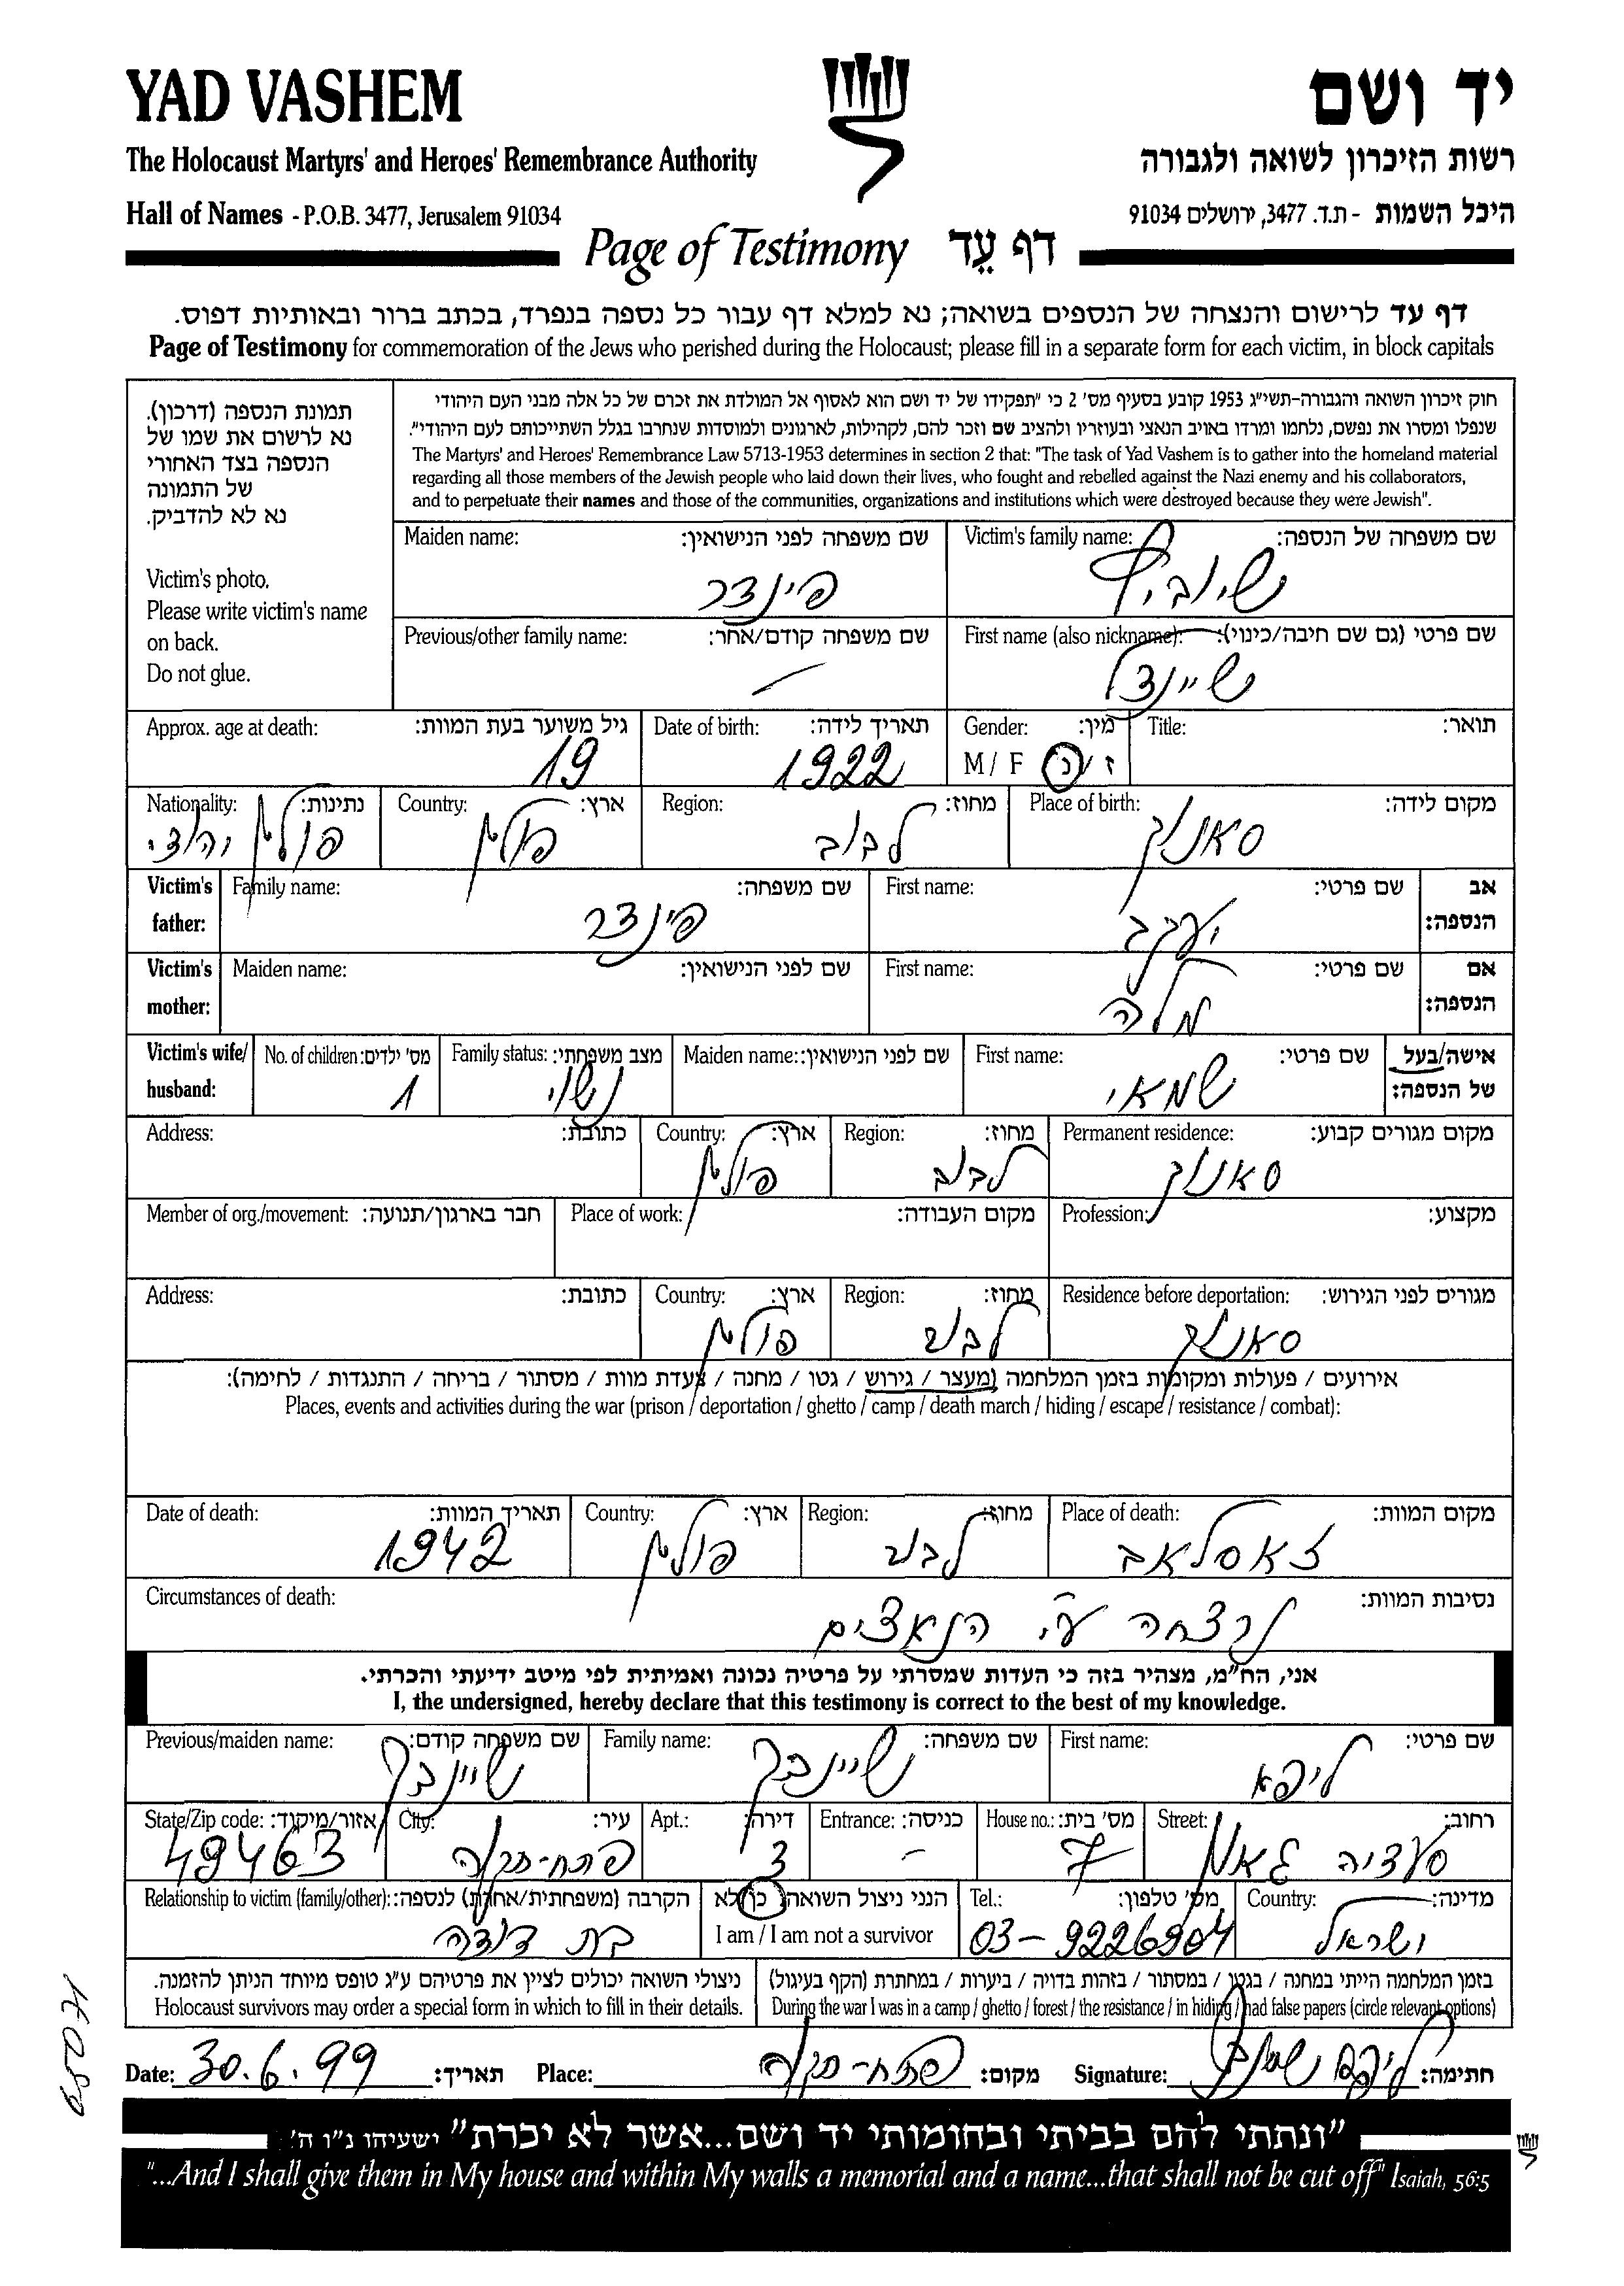 YAD VASHEM
יד ושם
The Holocaust Martyrs' and Heroes' Remembrance Authority
רשות הזיכרון לשואה ולגבורה
Hall of Names - P.O.B. 3477, Jerusalem 91034
היכל השמות - ת.ד. 3477, ירושלים 91034
Page of Testimony דף עֵד
דף עד לרישום והנצחה של הנספים בשואה; נא למלא דף עבור כל נספה בנפרד, בכתב ברור ובאותיות דפוס.
Page of Testimony for commemoration of the Jews who perished during the Holocaust; please fill in a separate form for each victim, in block capitals
תמונת הנספה (דרכון).
נא לרשום את שמו של
הנספה בצד האחורי
של התמונה
נא לא להדביק.
Victim's photo.
Please write victim's name
on back.
Do not glue.
חוק זיכרון השואה והגבורה-תשי"ג 1953 קובע בסעיף מס' 2 כי "תפקידו של יד ושם הוא לאסוף אל המולדת את זכרם של כל אלה מבני העם היהודי
שנפלו ומסרו את נפשם, נלחמו ומרדו באויב הנאצי ובעוזריו ולהציב שם וזכר להם, לקהילות, לארגונים ולמוסדות שנחרבו בגלל השתייכותם לעם היהודי".
The Martyrs' and Heroes' Remembrance Law 5713-1953 determines in section 2 that: "The task of Yad Vashem is to gather into the homeland material
regarding all those members of the Jewish people who laid down their lives, who fought and rebelled against the Nazi enemy and his collaborators,
and to perpetuate their names and those of the communities, organizations and institutions which were destroyed because they were Jewish".
Victim's family name: שם משפחה של הנספה:
Maiden name: שם משפחה לפני הנישואין:
פינדר
First name (also nickname): שם פרטי (גם שם חיבה/כינוי):
שיינדל
Previous/other family name: שם משפחה קודם/אחר:
—
Title: תואר:
Gender: מין:
M / F ז / נ
Date of birth: תאריך לידה:
1922
Approx. age at death: גיל משוער בעת המוות:
19
Place of birth: מקום לידה:
סאנוק
Region: מחוז:
לבוב
Country: ארץ:
פולין
Nationality: נתינות:
פולין יהודי
Victim's father: אב הנספה:
First name: שם פרטי:
יעקב
Family name: שם משפחה:
פינדר
Victim's mother: אם הנספה:
First name: שם פרטי:
מלה
Maiden name: שם לפני הנישואין:
Victim's wife/ husband: אישה/בעל של הנספה:
First name: שם פרטי:
שמאי
Maiden name: שם לפני הנישואין:
Family status: מצב משפחתי:
נשוי
No. of children: מס' ילדים:
1
Permanent residence: מקום מגורים קבוע:
סאנוק
Region: מחוז:
לבוב
Country: ארץ:
פולין
Address: כתובת:
Profession: מקצוע:
Place of work: מקום העבודה:
Member of org./movement: חבר בארגון/תנועה:
Residence before deportation: מגורים לפני הגירוש:
סאנוק
Region: מחוז:
לבוב
Country: ארץ:
פולין
Address: כתובת:
אירועים / פעולות ומקומות בזמן המלחמה (מעצר / גירוש / גטו / מחנה / צעדת מוות / מסתור / בריחה / התנגדות / לחימה):
Places, events and activities during the war (prison / deportation / ghetto / camp / death march / hiding / escape / resistance / combat):
Place of death: מקום המוות:
זאסלאב
Region: מחוז:
לבוב
Country: ארץ:
פולין
Date of death: תאריך המוות:
1942
Circumstances of death: נסיבות המוות:
נרצחה ע"י הנאצים
אני, הח"מ, מצהיר בזה כי העדות שמסרתי על פרטיה נכונה ואמיתית לפי מיטב ידיעתי והכרתי.
I, the undersigned, hereby declare that this testimony is correct to the best of my knowledge.
First name: שם פרטי:
ליפא
Family name: שם משפחה:
שיינבך
Previous/maiden name: שם משפחה קודם:
שיינבך
Street: רחוב:
סעדיה גאון
House no.: מס' בית:
7
Entrance: כניסה:
–
Apt.: דירה:
3
City: עיר:
פתח-תקוה
State/Zip code: אזור/מיקוד:
49463
Country: מדינה:
ישראל
Tel.: מס' טלפון:
03-9226904
הנני ניצול השואה: כן/לא
I am / I am not a survivor
Relationship to victim (family/other): הקרבה (משפחתית/אחרת) לנספה:
בת דודה
בזמן המלחמה הייתי במחנה / בגטו / במסתור / בזהות בדויה / ביערות / במחתרת (הקף בעיגול)
During the war I was in a camp / ghetto / forest / the resistance / in hiding / had false papers (circle relevant options)
ניצולי השואה יכולים לציין את פרטיהם ע"ג טופס מיוחד הניתן להזמנה.
Holocaust survivors may order a special form in which to fill in their details.
Date: 30.6.99 תאריך: Place: פתח-תקוה מקום: Signature: ליפא שיינבך חתימה:
"ונתתי להם בביתי ובחומותי יד ושם...אשר לא יכרת" ישעיהו נ"ו ה'
"...And I shall give them in My house and within My walls a memorial and a name...that shall not be cut off" Isaiah, 56:5